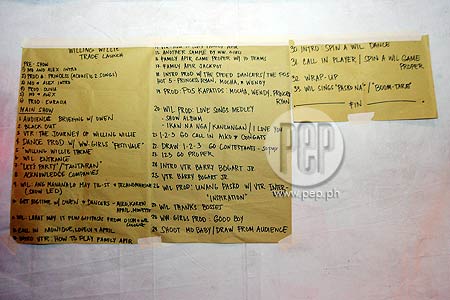 WILLING WILLIE
TRADE LAUNCH
PRE-SHOW
1) MO AND ALEX INTRO
2) PROD A: PRINCESS (ACOUSTIC 2 SONGS)
3) MO & ALEX INTRO
4) PROD:
5) MO & ALEX
6) PROD:
MAIN SHOW
1 AUDIENCE BRIEFING W/ OWEN
2 BLACK OUT
3 VTR: THE JOURNEY OF WILLING WILLIE
4 DANCE PROD W/ WW GIRLS "FESTIVALE"
5 WILLING WILLIE THEME
6 WIL ENTRANCE
7 "LET'S PARTY" / "TANTARAN"
8 ACKNOWLEDGE COMPANIES
9 WIL: ANG MANANALO MAY TV-5T +
(SHOW LED)
GET BIGTIME W/ OWEN & DANCERS - ALEO, KAREN
APRIL,
WIL: LAHAT MAY
CALL IN MONIQUE, LOVELY & APRIL
INTRO VTR: HOW TO PLAY FAMILY APIR
VTR: HOW TO PLAY FAMILY APIR
ANOTHER SAMPLE BY WW GIRLS
FAMILY APIR GAME PROPER W/ 10 TEAMS
FAMILY APIR JACKPOT
INTRO PROD W/ THE SPEED DANCERS/ THE POS
& PRINCESS RYAN, MOCHA, & WENDY
19 PROD: POS KAPATIDS: MOCHA, WENDY, PRINCESS
RYAN
20 WIL PROD: LOVE SONGS MEDLEY
- SHOW ALBUM
- IKAW NA NGA/KANLUNGAN/I LOVE YOU
21 1-2-3 GO CALL IN AIKO & CONGATS
22 DRAW 1-2-3 GO CONTESTANTS
23 123 GO PROPER
24 INTRO VTR BARRY BOGART JR.
25 VTR BARRY BOGART JR
26 WIL PROD: UNANG PASKO W/ VTR INTER-
"INSPIRATION"
27 WIL THANKS BOSSES
28 WW GIRLS PROD: GOOD BOY
29 SHOOT MO BABY/DRAW FROM AUDIENCE
30 INTRO SPIN A WIL DANCE
31 CALL IN PLAYER/SPIN A WIL GAME
PROPER
32 WRAP-UP
33 WIL SINGS "PASKO NA"/"BOOM-TARAT"
FIN
PEP
www.pep.ph